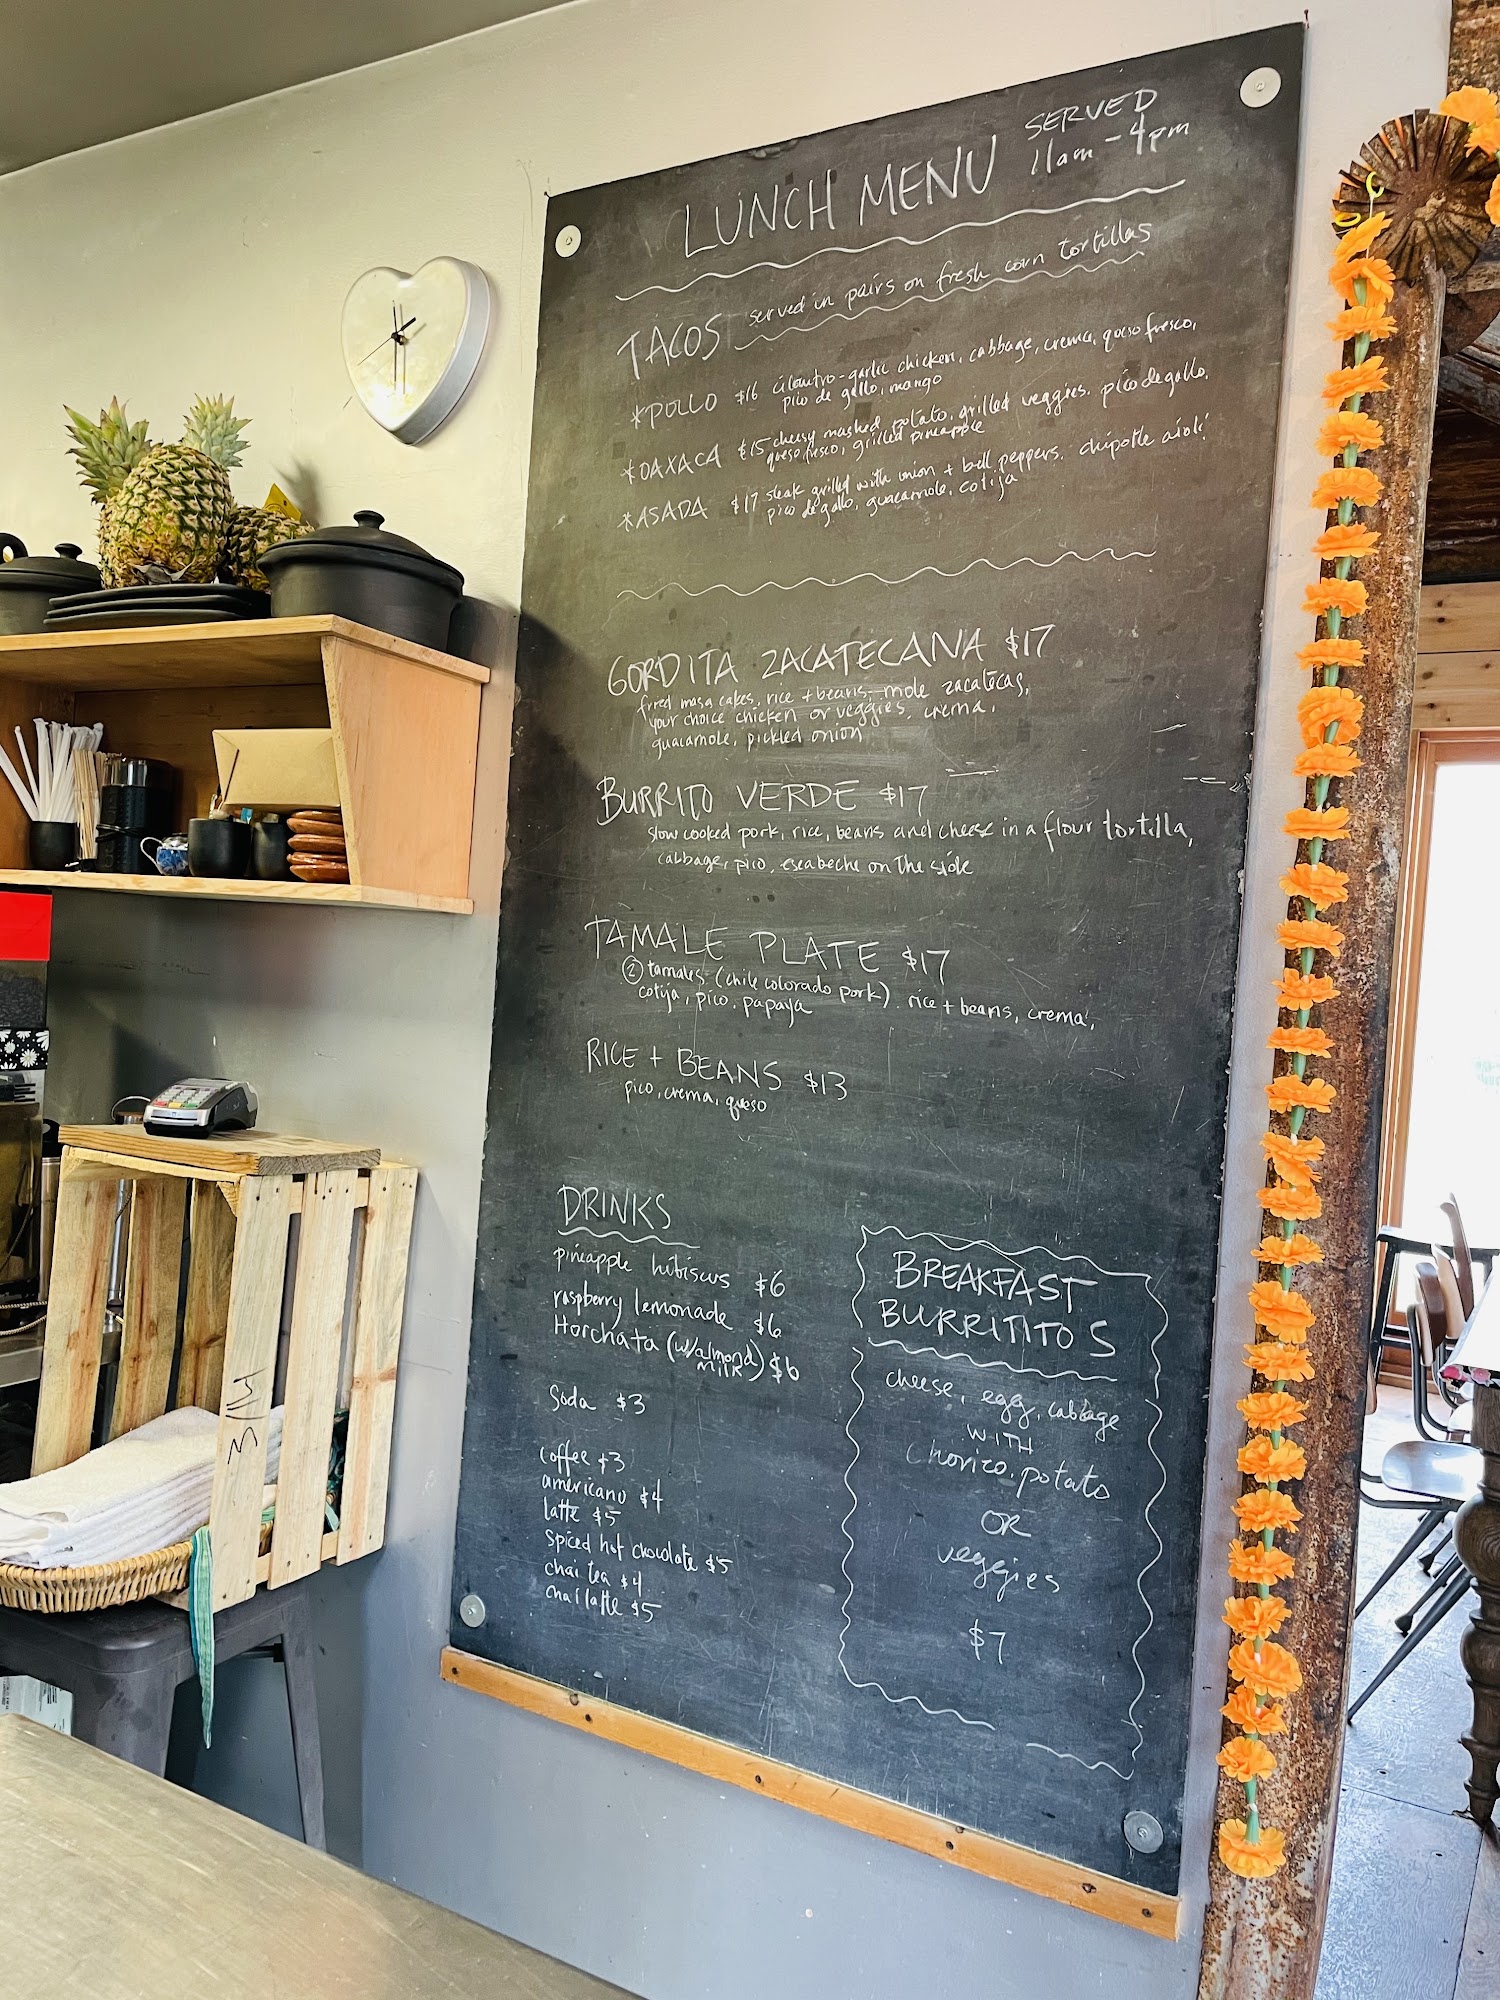 LUNCH MENU SERVED
11am - 4pm
TACOS served in pairs on fresh corn tortillas
*POLLO $16 cilantro-garlic chicken, cabbage, crema, queso fresco,
pico de gallo, mango
*OAXACA $15 cheesy mashed potato, grilled veggies. pico de gallo,
queso fresco, grilled pineapple
*ASADA $17 steak grilled with onion + bell peppers. chipotle aioli,
pico de gallo, guacamole, cotija
GORDITA ZACATECANA $17
fried masa cakes, rice + beans, mole zacatecas,
your choice chicken or veggies. crema,
guacamole, pickled onion
BURRITO VERDE $17
slow cooked pork, rice, beans and cheese in a flour tortilla,
cabbage, pico, escabeche on the side
TAMALE PLATE $17
2 tamales (chile colorado pork). rice + beans, crema,
cotija, pico. papaya
RICE + BEANS $13
pico, crema, queso
DRINKS
pineapple hibiscus $6
raspberry lemonade $6
Horchata (w/almond milk) $6
Soda $3
coffee $3
americano $4
latte $5
spiced hot chocolate $5
chai tea $4
chai latte $5
BREAKFAST
BURRITITOS
cheese, egg, cabbage
WITH
chorizo, potato
OR
veggies
$7